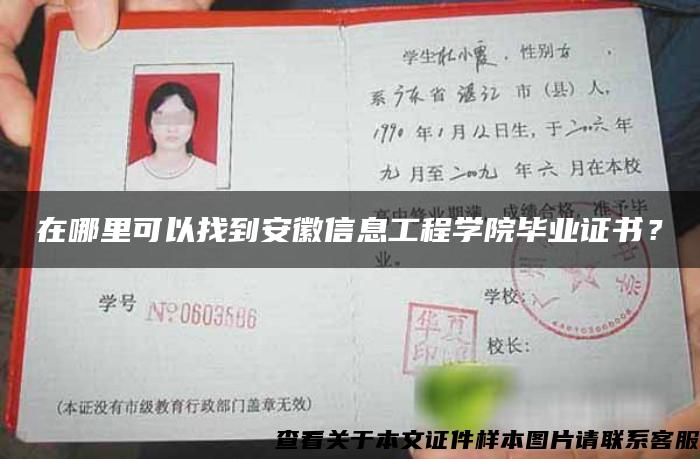 学生杜小霞，性别女，
系广东省湛江市（县）人，
1990年1月12日生，于二〇〇六年
九月至二〇〇九年六月在本校
在哪里可以找到安徽信息工程学院毕业证书？
业。
学号 №0603586
学校：
华夏
印
校长：
（本证没有市级教育行政部门盖章无效）
查看关于本文证件样本图片请联系客服